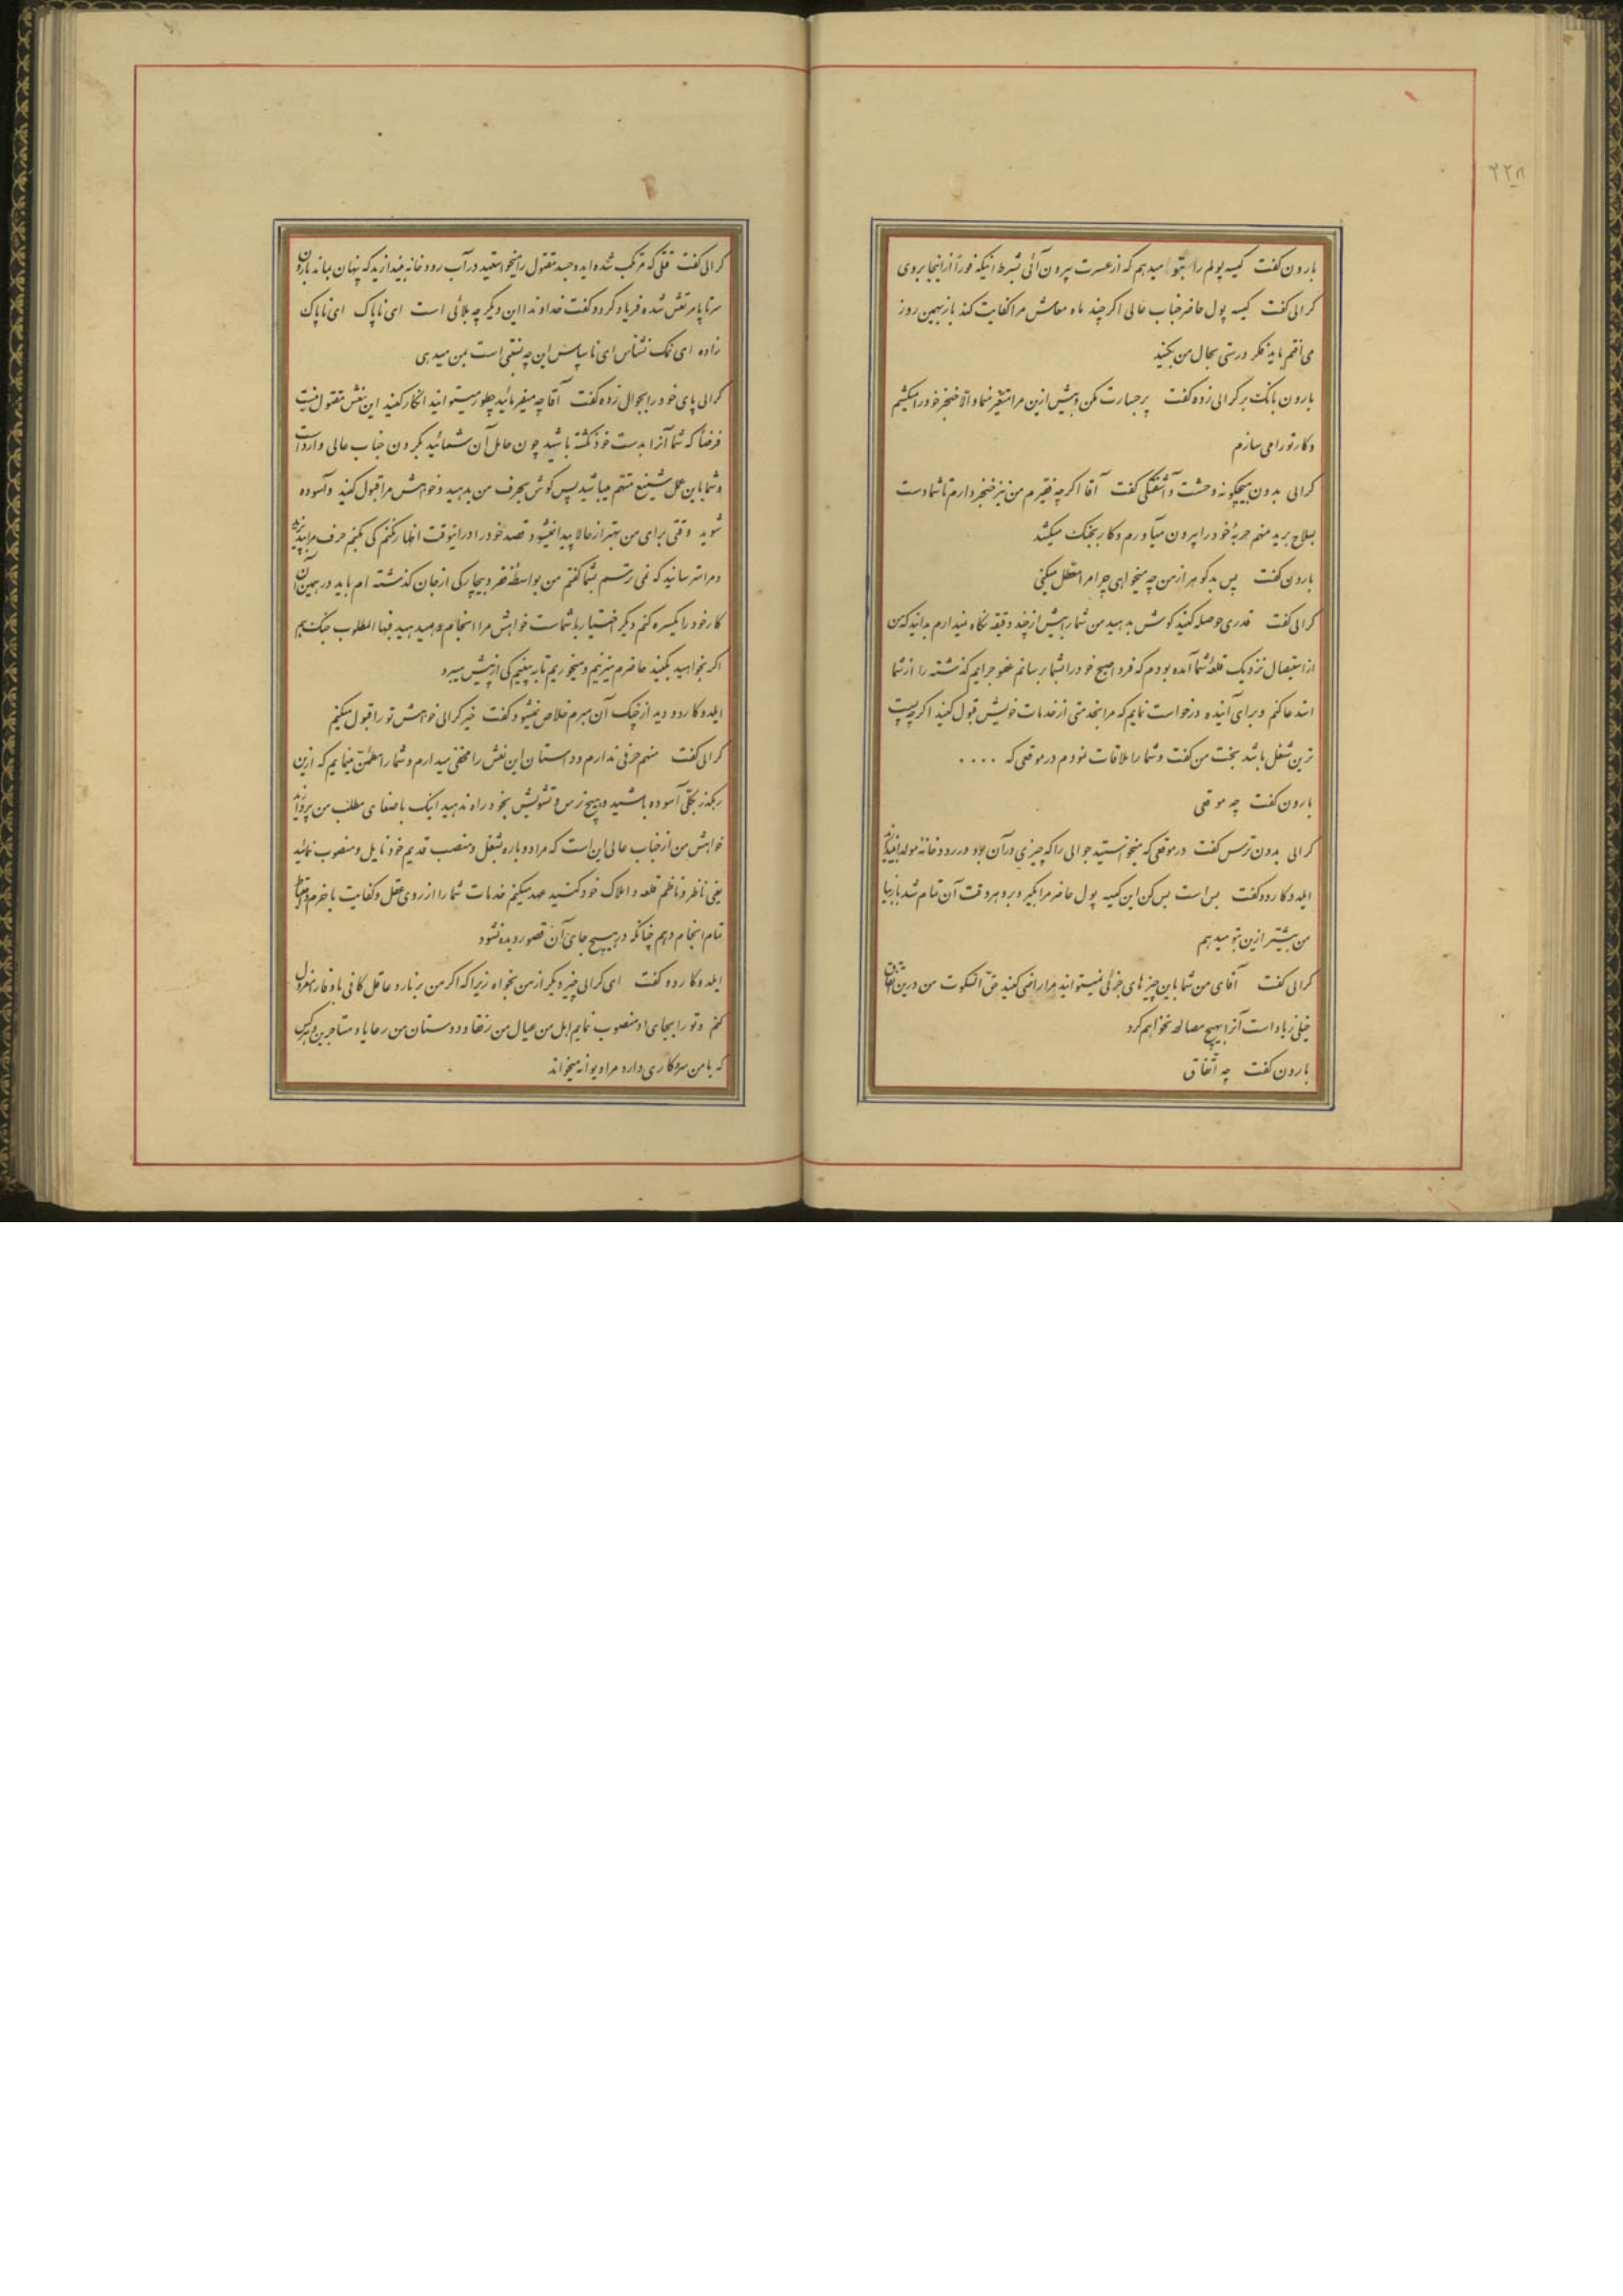 ۲۲۸
بارون گفت کیسه پولم را بتو میدهم که از عسرت بیرون آئی بشرط اینکه فوراً از اینجا بروی
کرالی گفت کیسه پول حاضر جناب عالی اگر چند ماه معاش مرا کفایت کند باز بهمین روز
می افتم باید فکر درستی بحال من بکنید
بارون بانک بر کرالی زده گفت پر جسارت مکن و بیش ازین مرا متغیر منما و الا خنجر خود را میکشم
و کار تو را می سازم
کرالی بدون هیچگونه وحشت و آشفتگی گفت آقا اگر چه فقیرم من نیز خنجر دارم تا شما دست
بسلاح برید منهم حربهٔ خود را بیرون میآورم و کار بجنگ میکشد
بارون گفت پس بدگوهر از من چه میخواهی چرا مرا معطل میکنی
کرالی گفت قدری حوصله کنید گوش بدهید من شما را بیش از چند دقیقه نگاه نمیدارم بدانید که من
از استیصال نزدیک قلعهٔ شما آمده بودم که فردا صبح خود را بشما برسانم عفو جرایم گذشته را از شما
استدعا کنم و برای آینده درخواست نمایم که مرا بخدمتی از خدمات خویش قبول کنید اگر چه پست
ترین شغل باشد بخت من گفت و شما را ملاقات نمودم در موقعی که ....
بارون گفت چه موقعی
کرالی بدون ترس گفت در موقعی که میخواستید جوالی را که چیزی در آن بود در رودخانه مولدا
ایلدوکاردو گفت بس است بس کن این کیسه پول حاضر مرا بگیر و برو هر وقت آن تمام شد باز بیا
من بیشتر ازین بتو میدهم
کرالی گفت آقای من شما باین چیزهای جزئی نمیتوانید مرا راضی کنید حق السکوت من درین اتفاق
خیلی زیاد است آنرا بهیچ مصالحه نخواهم کرد
بارون گفت چه اتفاقی
کرالی گفت قتلی که مرتکب شده اید و جسد مقتول را میخواستید در آب رودخانه بیندازید که پنهان بماند بارون
سرتاپا مرتعش شده فریاد کرد و گفت خداوندا این دیگر چه بلائی است ای ناپاک ای ناپاک
زاده ای نمک نشناس ای ناسپاس این چه نسبتی است بمن میدهی
کرالی پای خود را بجوال زده گفت آقا چه میفرمائید چطور میتوانید انکار کنید این نعش مقتول نیست
فرضاً که شما آنرا بدست خود نکشته باشید چون حامل آن شمائید بگردن جناب عالی وارد است
و شما باین عمل شنیع متهم میباشید پس گوش بحرف من بدهید و خواهش مرا قبول کنید و آسوده
شوید وقتی برای من بهتر از حالا پیدا نمیشود قصد خود را در اینوقت اظهار نکنم کی بکنم حرف مرا بپذیرید
و مرا نترسانید که نمی ترسم بشما گفتم من بواسطهٔ فقر و بیچارگی از جان گذشته ام باید در همین آن
کار خود را یکسره کنم دیگر اختیار با شماست خواهش مرا انجام میدهید فبها المطلوب جنگ هم
اگر بخواهید بکنید حاضرم میزنیم و میخوریم تا به بینیم کی از پیش میبرد
ایلدوکاردو دید از چنگ آن مبرم خلاص نمیشود گفت خیر کرالی خواهش تو را قبول میکنم
کرالی گفت منهم حرفی ندارم و داستان این نعش را مخفی میدارم و شما را مطمئن مینمایم که ازین
رهگذر بکلی آسوده باشید و هیچ ترس و تشویش بخود راه ندهید اینک باصغای مطلب من پردازید
خواهش من از جناب عالی این است که مرا دوباره بشغل و منصب قدیم خود نایل و منصوب نمائید
یعنی ناظر و ناظم قلعه و املاک خود کنید عهد میکنم خدمات شما را از روی عقل و کفایت با حزم و احتیاط
تمام انجام دهم چنانکه در هیچ جای آن قصور دیده نشود
ایلدوکاردو گفت ای کرالی چیز دیگر از من بخواه زیرا که اگر من برناردو عاقل کافی با وقار را معزول
کنم و تو را بجای او منصوب نمایم اهل من عیال من رفقا و دوستان من رعایا و مستاجرین و هر کس
که با من سر و کاری دارد مرا دیوانه میخواند